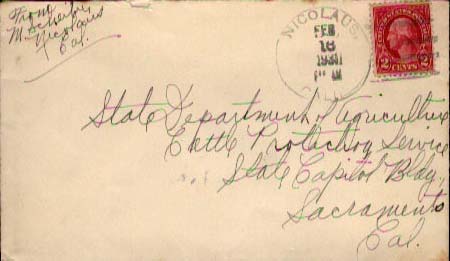 From
M. Scheiber
Nicolaus
Cal.
NICOLAUS,
FEB
18
M
CALIF.
UNITED STATES POSTAGE
2 CENTS 2
State Department of Agriculture
Cattle Protection Service
State Capitol Bldg,
Sacramento
Cal.